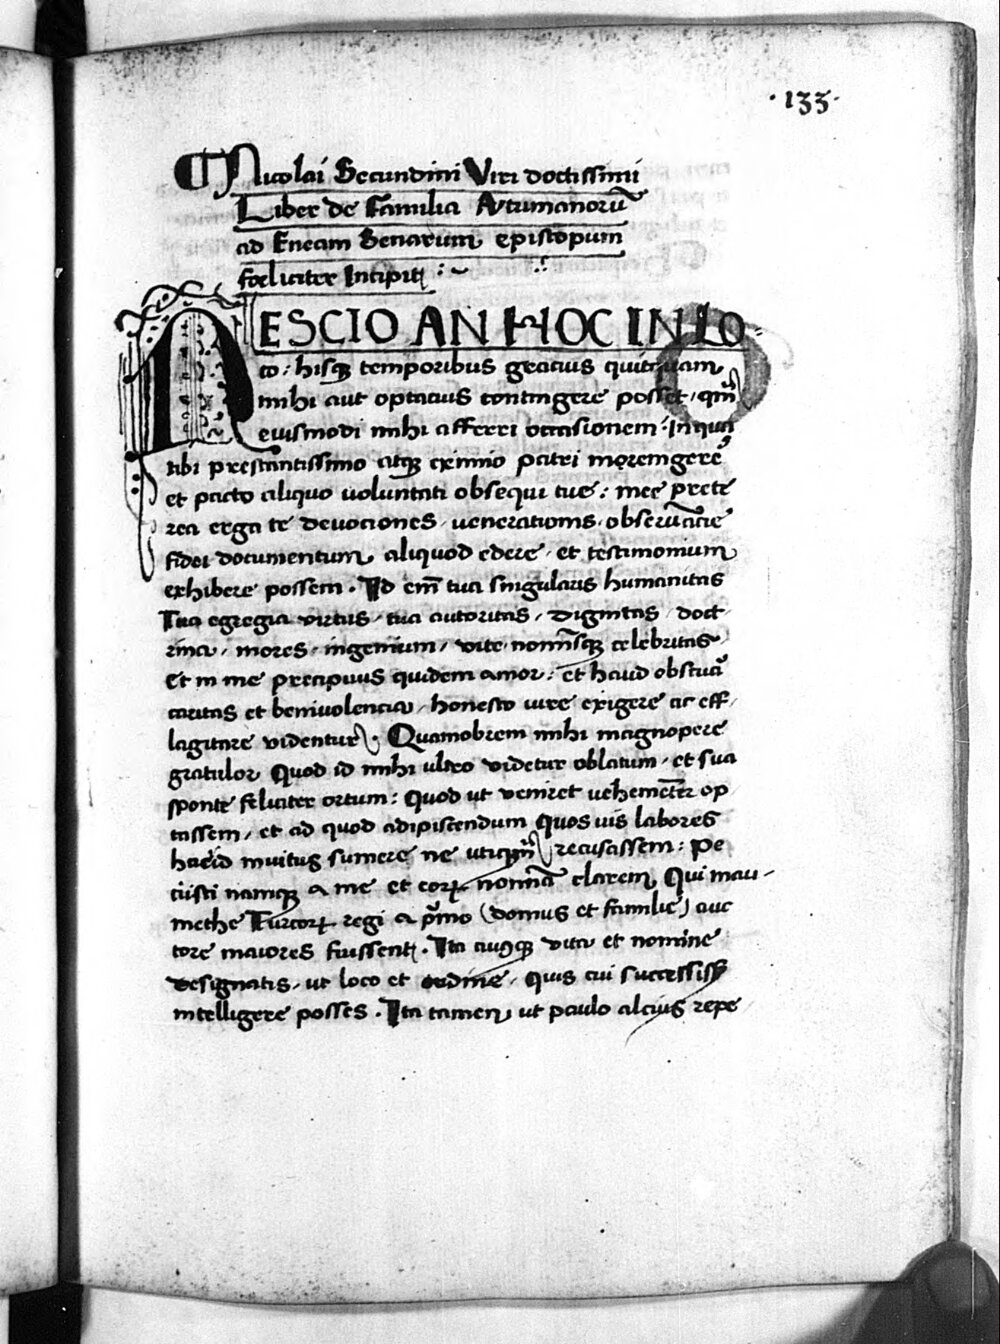 ·133·
Nicolai Secundini Viri doctissimi
Liber de Familia Autumanorū
ad Eneam Senarum episcopum
foeliciter Incipit
NESCIO AN HOC IN LO
co: hisq temporibus gracius quicquam
mihi aut optacius contingere posset, qm̄
eiusmodi mihi afferri occasionem: In qua
tibi prestantissimo atq eximio patri morem gerē
et pacto aliquo uoluntati obsequi tue: mee prete
rea erga te deuociones, uenerationis, obseruācie
fidei documentum aliquod edere, et testimonium
exhibere possem. Id em̄ tua singularis humanitas
Tua egregia virtus, tua autoritas, dignitas, doct
rina, mores, ingenium, vite nominisq celebritas
et in me precipuus quidem amor: et haud obscura
caritas et beniuolencia, honesto iure exigere ac eff
lagitare videntur. Quamobrem mihi magnopere
gratulor Quod id mihi ultro videtur oblatum, et sua
sponte feliciter ortum: Quod ut veniret uehementer op
tassem, et ad quod adipiscendum quos uis labores
haud inuitus sumere ne utiqm̄ recusassem: Pe
ciisti namq a me et eorꝝ nomina clarem Qui mau
methe Turcorꝝ regi a pͥmo (domus et familie) auc
tore maiores fuissent. Ita cuiusq vita et nomine
designatis, ut loco et ordine, quis cui successiss
intelligere posses. Ita tamen ut paulo alcius repe